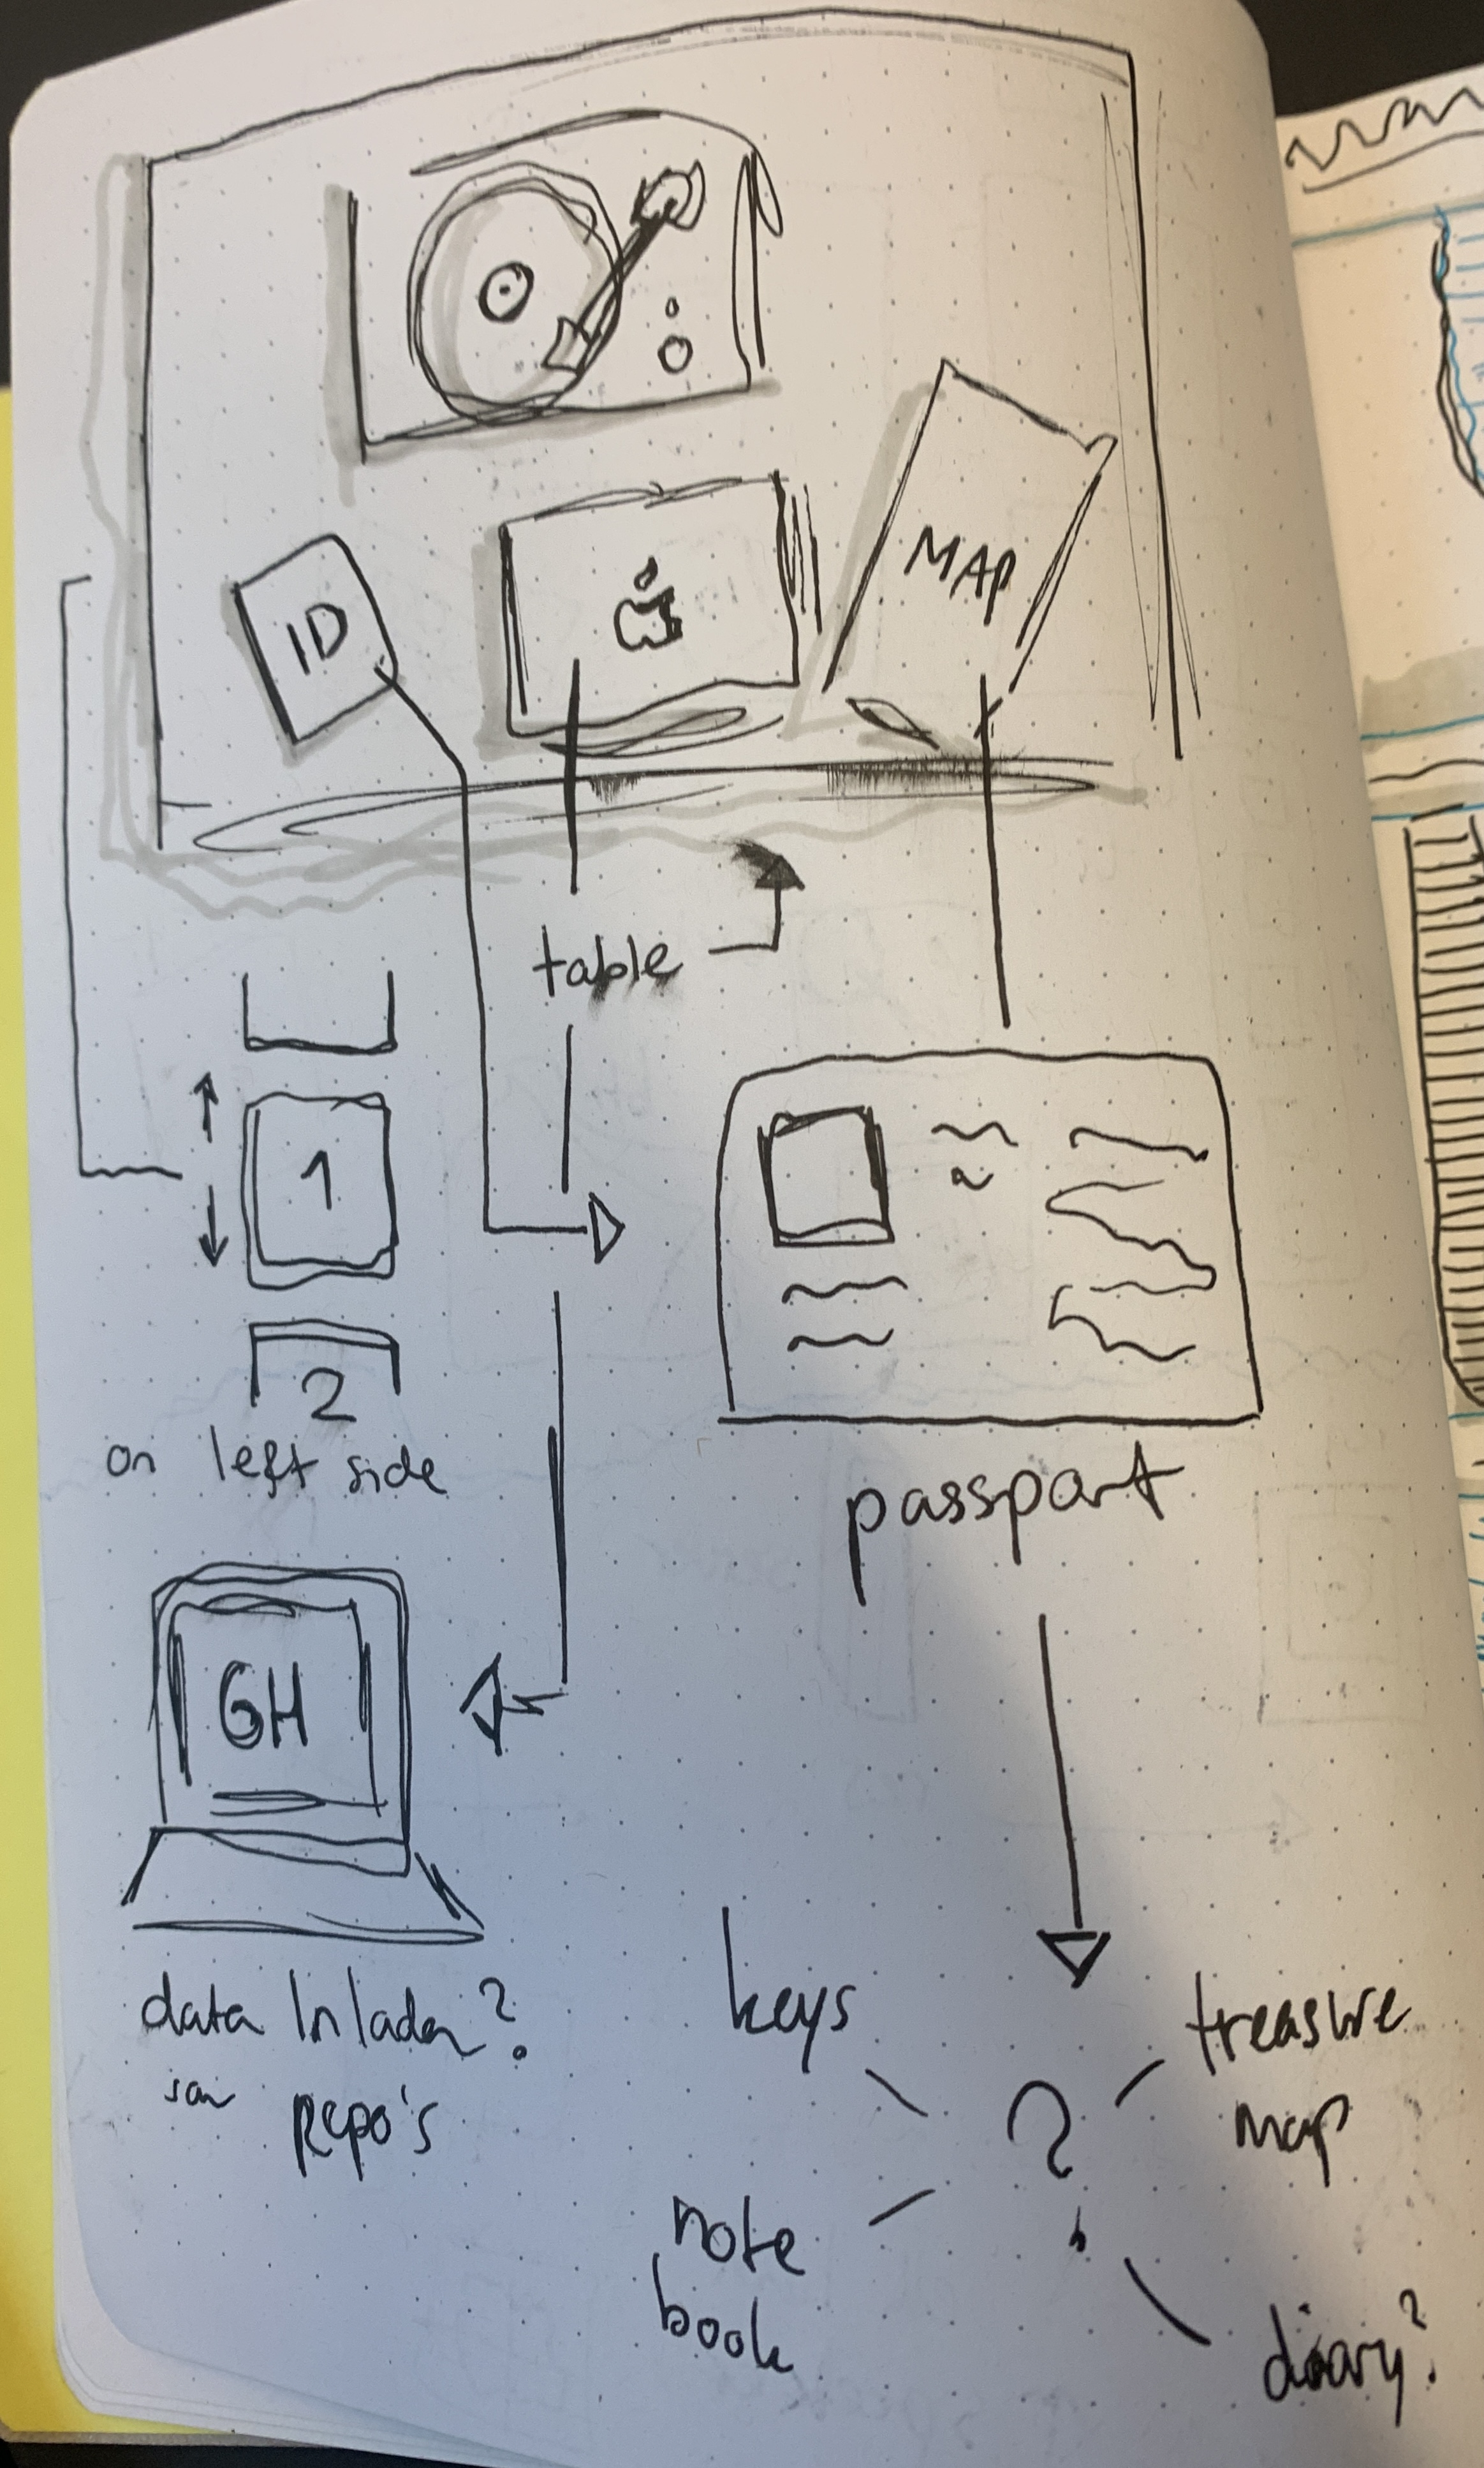 ID
MAP
table
1
2
on left side
passport
GH
data Inladen?
van Repo's
keys
treasure
map
?
note
book
diary?